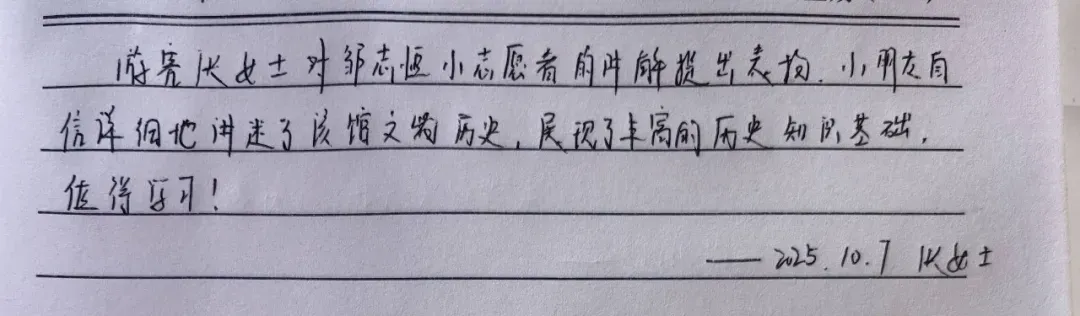 游客张女士对邹志恒小志愿者的讲解提出表扬.小朋友自
信详细地讲述了该馆文物历史,展现了丰富的历史知识基础,
值得学习!
—— 2025.10.7 张女士